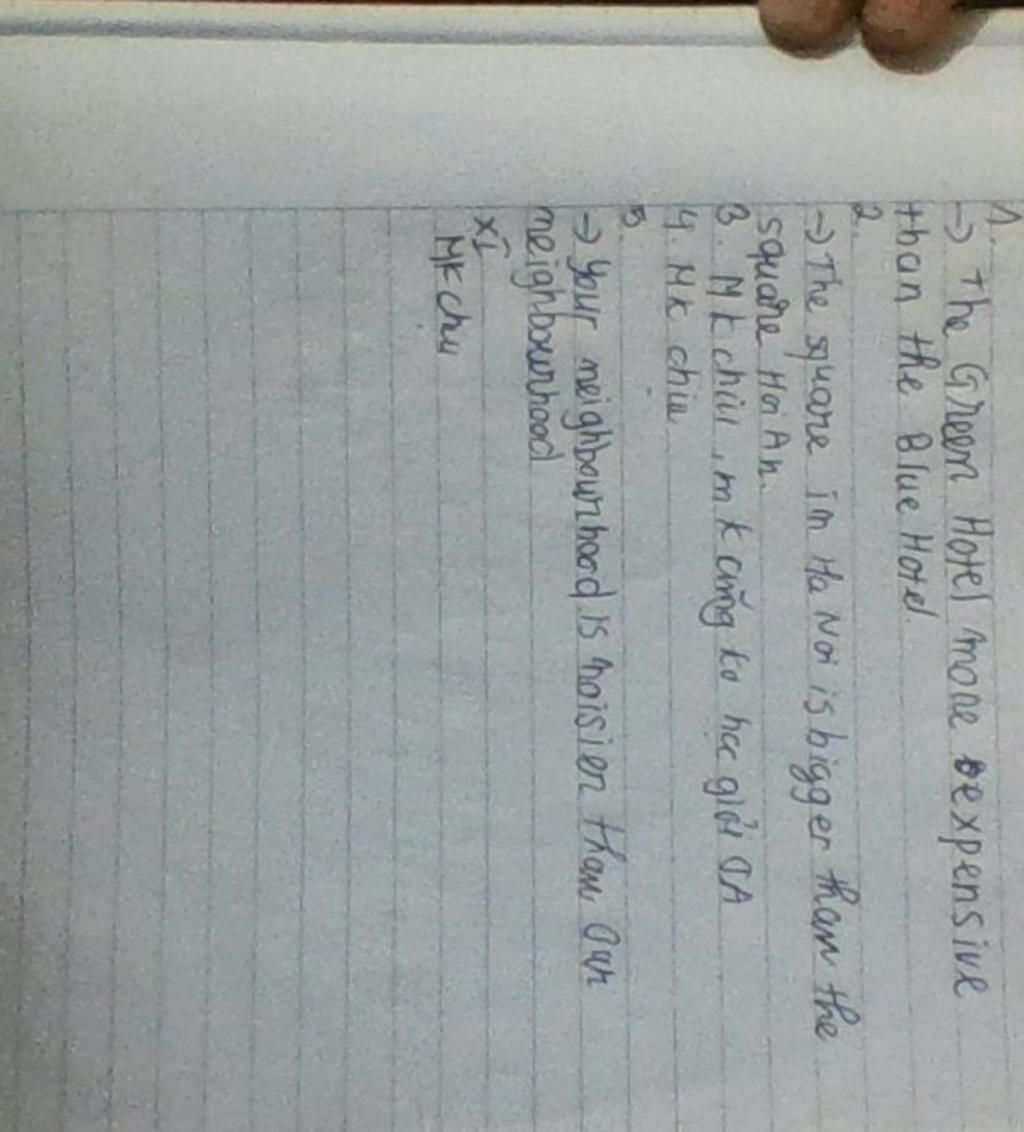 1.
→ The Green Hotel more expensive
than the Blue Hotel.
2.
→ The square in Ha Noi is bigger than the
square Hoi An.
3. Mk chịu, mk cũng ko học giỏi
4. Mk chịu
5.
→ Your neighbourhood is noisier than our
neighbourhood
XI
Mk chịu